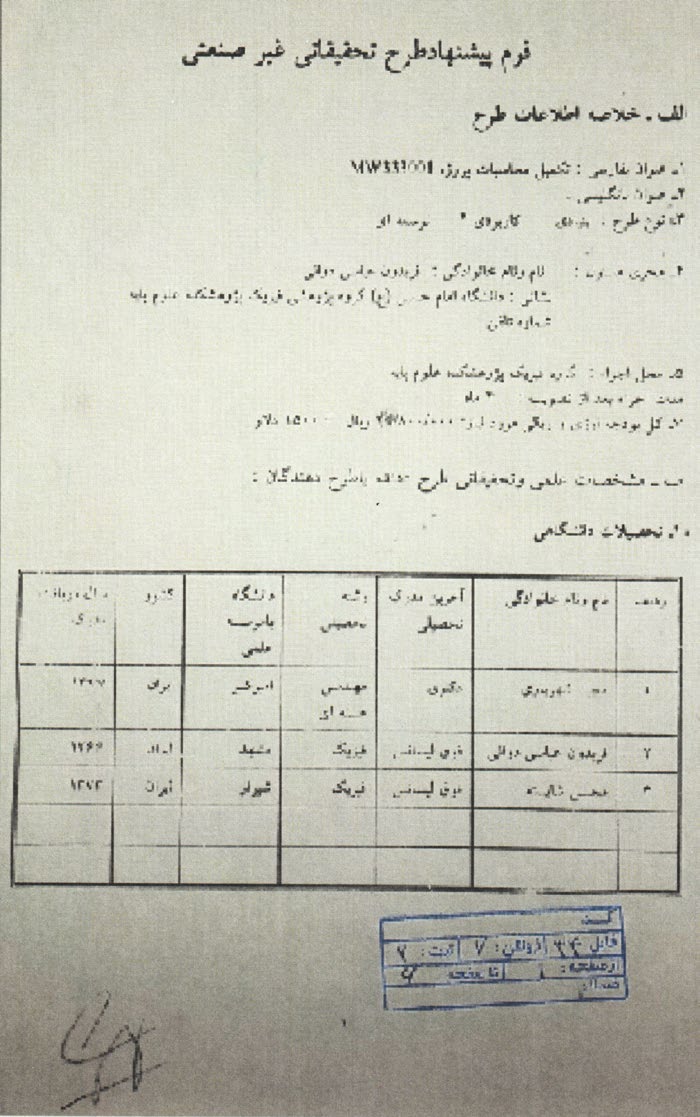 فرم پیشنهاد طرح تحقیقاتی غیر صنعتی
الف ـ خلاصه اطلاعات طرح
۱ـ عنوان بفارسی : تکمیل محاسبات پروژه MW333001
۲ـ عنوان بانگلیسی ـ
۳ـ نوع طرح : بنیادی کاربردی * توسعه ای
۴ـ مجری مسئول : نام ونام خانوادگی : فریدون عباسی دوانی
نشانی : دانشگاه امام حسین (ع) گروه پژوهشی فیزیک پژوهشکده علوم پایه
شماره تلفن
۵ـ محل اجراء : گروه فیزیک پژوهشکده علوم پایه
مدت اجراء بعد از تصویب : ماه
کل بودجه ارزی و ریالی مورد نیاز: ریال ۱۵۰۰ دلار
ب ـ مشخصات علمی وتحقیقاتی طرح دهنده یاطرح دهندگان :
۱ـ تحصیلات دانشگاهی
ردیف نام ونام خانوادگی آخرین مدرک تحصیلی رشته تحصیلی دانشگاه یاموسسه علمی کشور سال دریافت مدرک
۱ مجید شهریاری دکتری مهندسی هسته ای امیرکبیر ایران
۲ فریدون عباسی دوانی فوق لیسانس فیزیک مشهد ایران ۱۳۶۶
۳ محسن فوق لیسانس فیزیک شیراز ایران ۱۳۷۳
کد:
فایل: ۳۴ زونکن: ۷ ثبت: ۲
ازصفحه: ۱ تا صفحه ۶